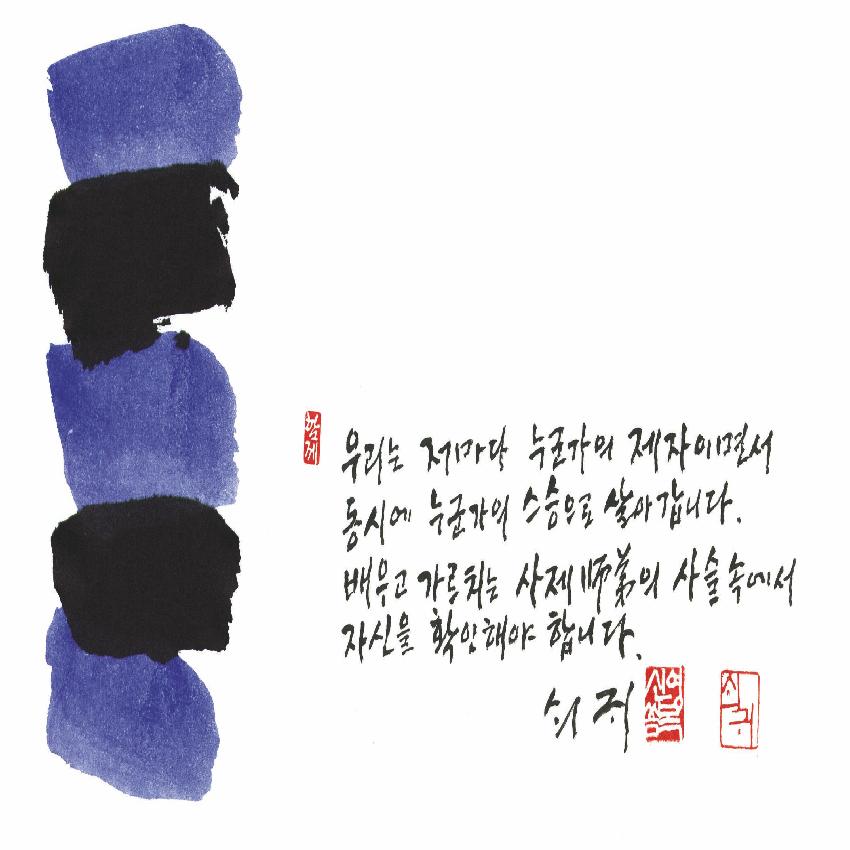 함께
우리는 저마다 누군가의 제자이면서
동시에 누군가의 스승으로 살아갑니다.
배우고 가르치는 사제師弟의 사슬속에서
자신을 확인해야 합니다.
쇠귀
신영복
쇠귀